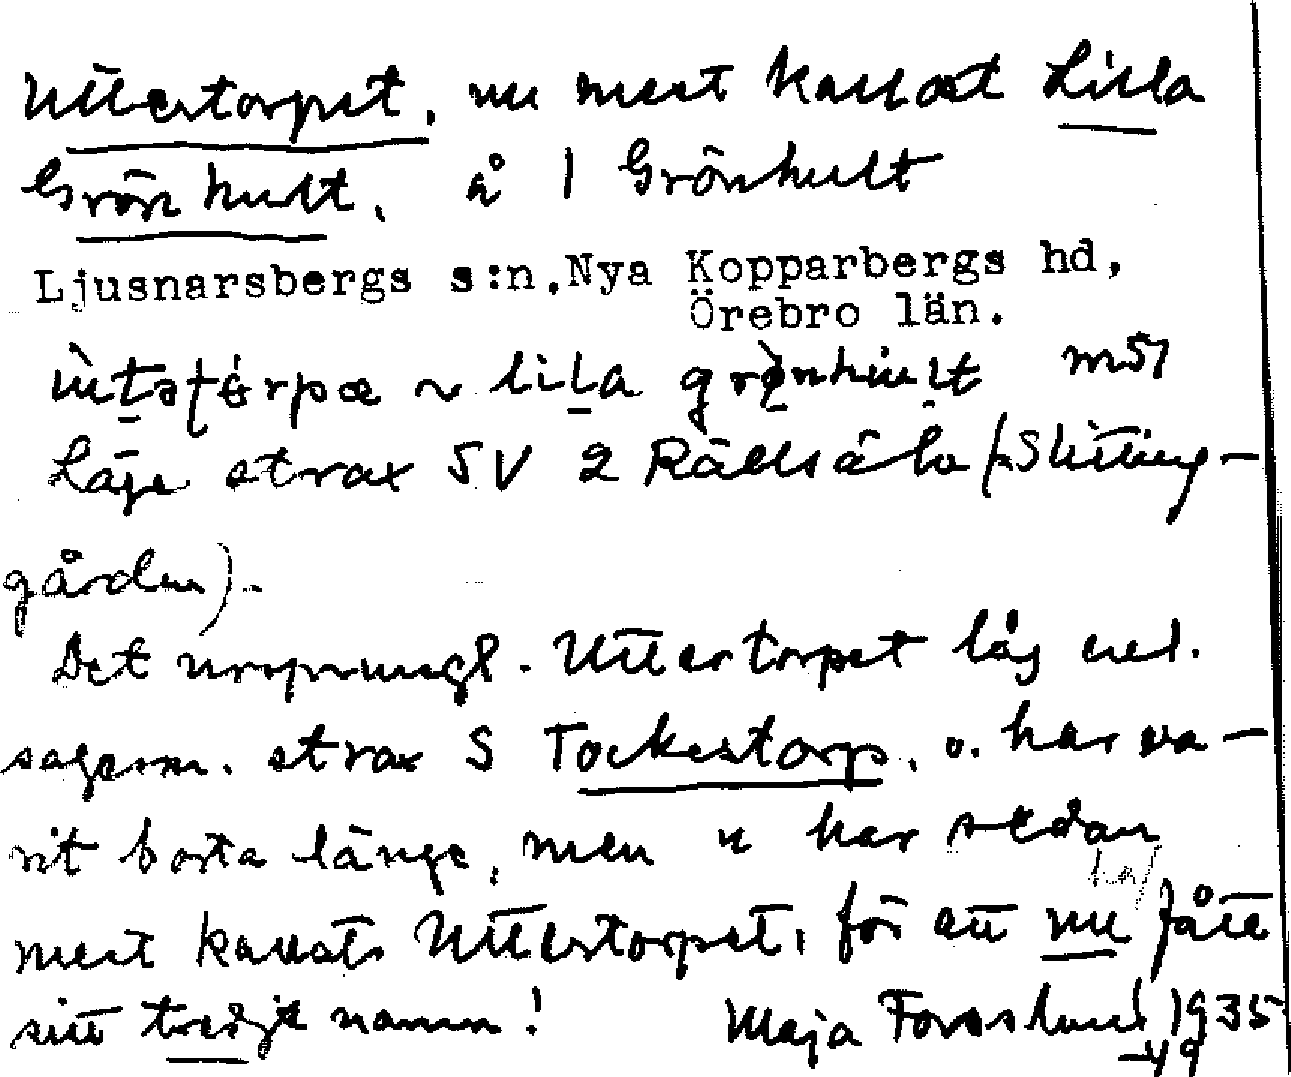 Uttertorpet, nu mest kallat Lilla
Grönhult, å 1 Grönhult
Ljusnarsbergs s:n. Nya Kopparbergs hd,
Örebro län.
lila
Läge strax SV 2 Rällsälv (Slitting-
gården).
Det ursprungl. Uttertorpet låg enl.
sagesm. strax S Tockestorp, o. har va-
rit borta länge, men har sedan
mest kallats Uttertorpet, för att nu ha/ fått
sitt tredje namn!
Maja Forsslund 1935
-49